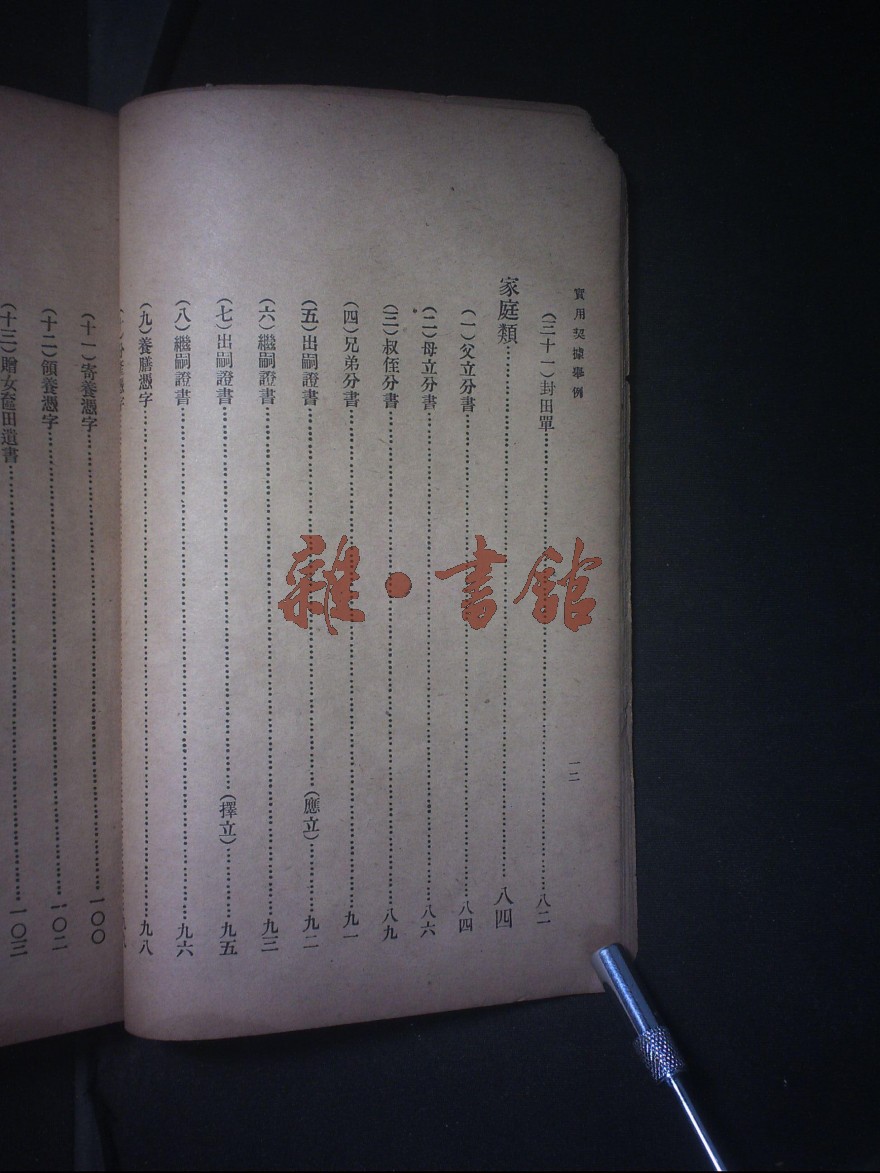 實用契據舉例
一二
（三十一）封田單……八二
家庭類……八四
（一）父立分書……八四
（二）母立分書……八六
（三）叔侄分書……八九
（四）兄弟分書……九一
（五）出嗣證書……（應立）……九二
（六）繼嗣證書……九三
（七）出嗣證書……（擇立）……九五
（八）繼嗣證書……九六
（九）養膳憑字……九八
（十一）寄養憑字……一〇〇
（十二）領養憑字……一〇二
（十三）贈女奩田遺書……一〇三
雜·書館